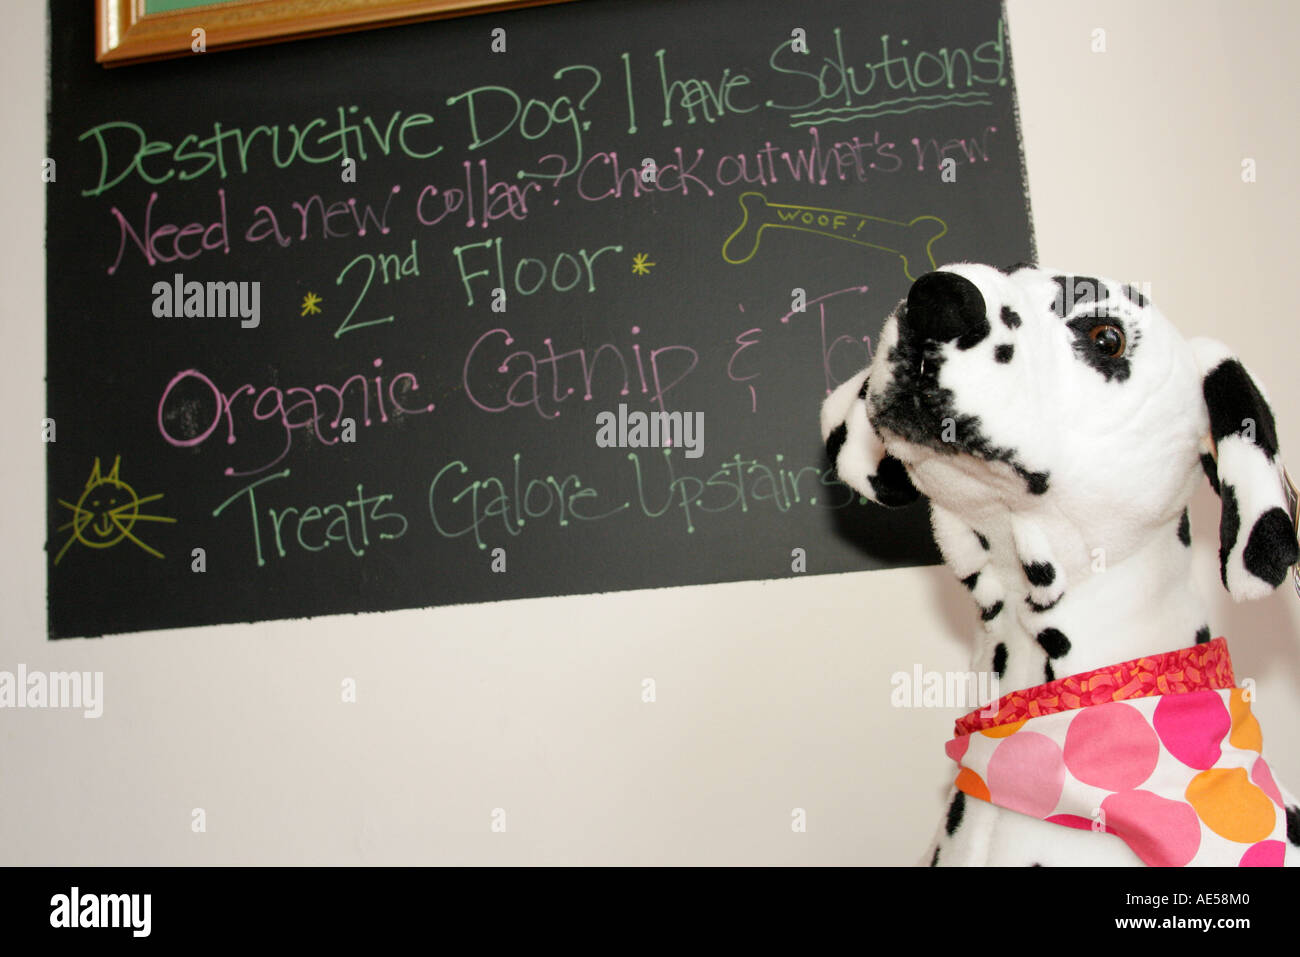 Destructive Dog? I have Solutions!
Need a new collar? Check out what's new
WOOF!
* 2nd Floor *
Organic Catnip &
Treats Galore Upstairs
alamy
alamy
Image ID: AE58M0
www.alamy.com